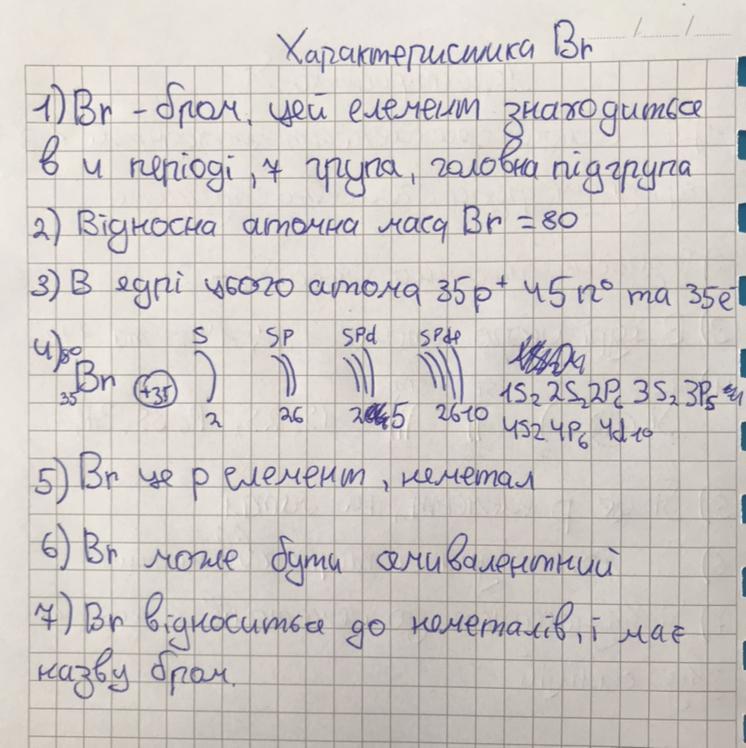 Характеристика Br
1) Br - бром, цей елемент знаходиться
в 4 періоді, 7 група, головна підгрупа
2) Відносна атомна маса Br = 80
3) В ядрі цього атома 35p⁺ 45n⁰ та 35e⁻
S SP SPd SPdf
4) ⁸⁰₃₅Br +35 1S₂ 2S₂ 2P₆ 3S₂ 3P₅
2 26 5 2610 4S2 4P₆ 4d10
5) Br це р елемент, неметал
6) Br може бути семивалентний
7) Br відноситься до неметалів, і має
назву бром.